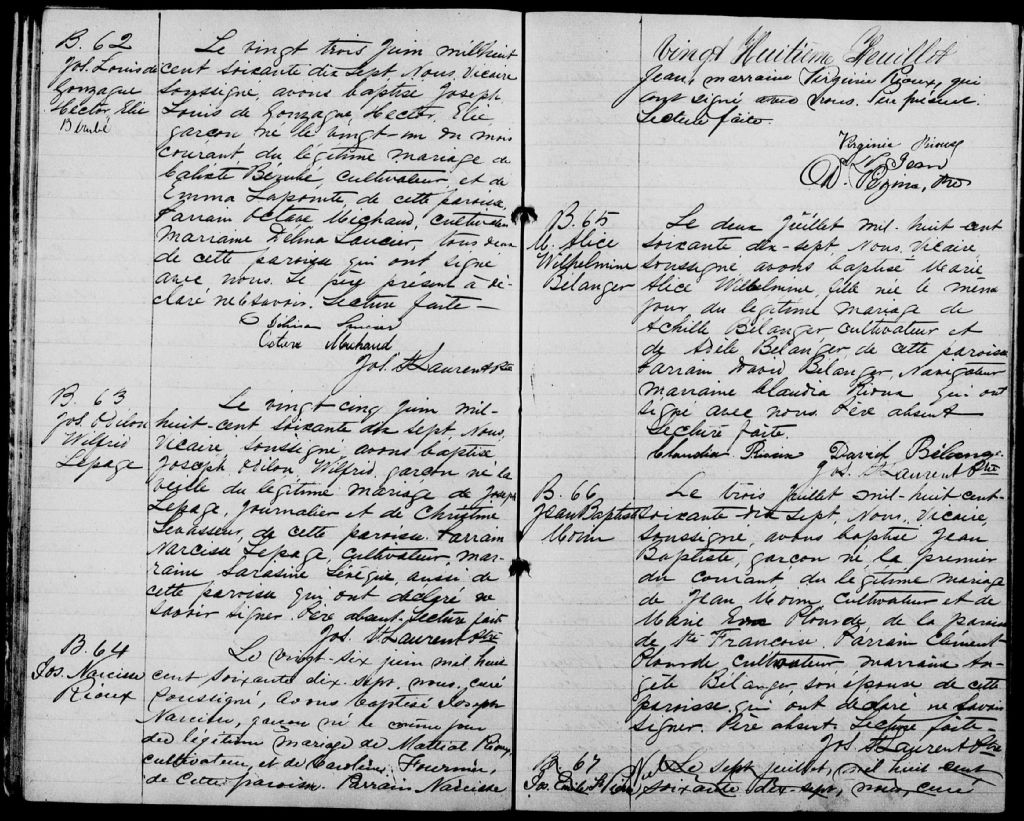 B. 62
Jos. Louis de
Gonzague
Hector Elie
Bérubé
Le vingt trois Juin mil huit
cent soixante dix sept, Nous, Vicaire
soussigné, avons baptisé Joseph
Louis de Gonzague, Hector, Elie,
garçon né le vingt-un du mois
courant du légitime mariage de
Bérubé, cultivateur et de
Emma Lapointe, de cette paroisse,
Parrain Octave Michaud, cultivateur
Marraine Délina Saucier, tous deux
de cette paroisse qui ont signé
avec nous. Le père présent a dé-
claré ne savoir. Lecture faite —
Délina Saucier
Octave Michaud
Jos. St Laurent Ptre
B. 63
Jos. Odilon
Wilfrid
Lepage
Le vingt-cinq Juin mil-
huit-cent soixante dix sept, Nous,
Vicaire, soussigné, avons baptisé
Joseph Odilon Wilfrid, garçon né la
veille du légitime mariage de Joseph
Lepage, Journalier et de Christine
Levasseur, de cette paroisse. Parrain
Narcisse Lepage, cultivateur, mar-
raine, aussi de
cette paroisse qui ont déclaré ne
savoir signer. Père absent. Lecture faite
Jos. St Laurent Ptre
B. 64
Jos. Narcisse
Rioux
Le vingt-six juin mil huit
cent soixante dix-sept, nous, curé
soussigné, avons baptisé Joseph
Narcisse, garçon né le même jour
du légitime mariage de Rioux,
cultivateur, et de Caroline Fournier,
de cette paroisse. Parrain Narcisse
Vingt Huitième Feuillet
Jean, marraine Virginie Rioux, qui
ont signé avec nous. Père présent.
Lecture faite.
Virginie Rioux
Jean
D. Vézina, Ptre
B. 65
M. Alice
Wilhelmine
Bélanger
Le deux Juillet mil-huit-cent
soixante-dix-sept, Nous, Vicaire
soussigné, avons baptisé Marie
Alice Wilhelmine, fille née le même
jour du légitime mariage de
Achille Bélanger cultivateur et
de Adèle Bélanger, de cette paroisse
Parrain David Bélanger, Navigateur
marraine Claudia Rioux qui ont
signé avec nous. Père absent
Lecture faite.
Claudia Rioux David Bélanger
Jos. St Laurent Ptre
B. 66
Jean Baptiste
Morin
Le trois Juillet mil-huit cent-
soixante-dix sept, Nous, Vicaire,
soussigné, avons baptisé Jean
Baptiste, garçon né le premier
du courant du légitime mariage
de Jean Morin, cultivateur et de
Marie Plourde, de la paroisse
de Ste Françoise. Parrain Clément
Plourde cultivateur marraine An-
gèle Bélanger, son épouse de cette
paroisse, qui ont déclaré ne savoir
signer. Père absent. Lecture faite
Jos. St Laurent Ptre
B. 67
Le sept juillet, mil huit cent
soixante dix-sept, nous, curé